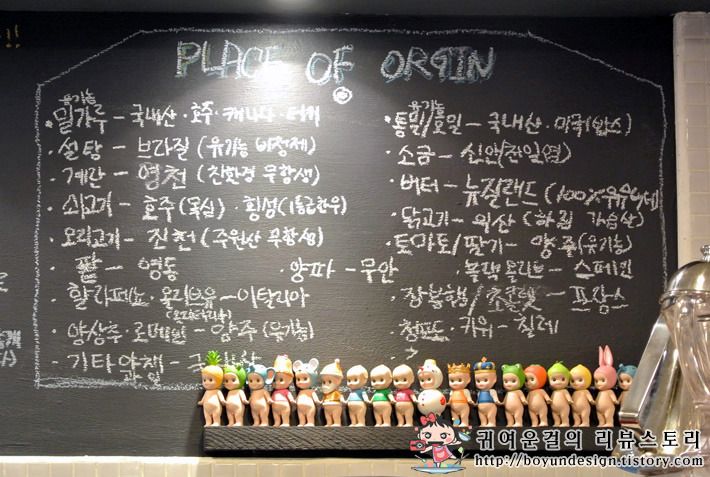 PLACE OF ORGIN
유기농
밀가루 - 국내산 · 호주 · 캐나다 · 터키
설탕 - 브라질 (유기농 비정제)
계란 - 영천 (친환경 무항생)
쇠고기 - 호주 (목심) · 횡성 (1등급한우)
오리고기 - 진천 (주원산 무항생)
팥 - 영동
양파 - 무안
할라피뇨 · 올리브유 - 이탈리아
양상추 · 로메인 - 양주 (유기농)
기타야챌 - 국내산
유기농
통밀/호밀 - 국내산 · 미국(밥스)
소금 - 신안(천일염)
버터 - 뉴질랜드 (100%
닭고기 - 익산 (하림 가슴살)
토마토/딸기 - 양주(유기농)
블랙올리브 - 스페인
잠봉햄/초콜렛 - 프랑스
청포도 · 키위 - 칠레
귀여운걸의 리뷰스토리
http://boyundesign.tistory.com